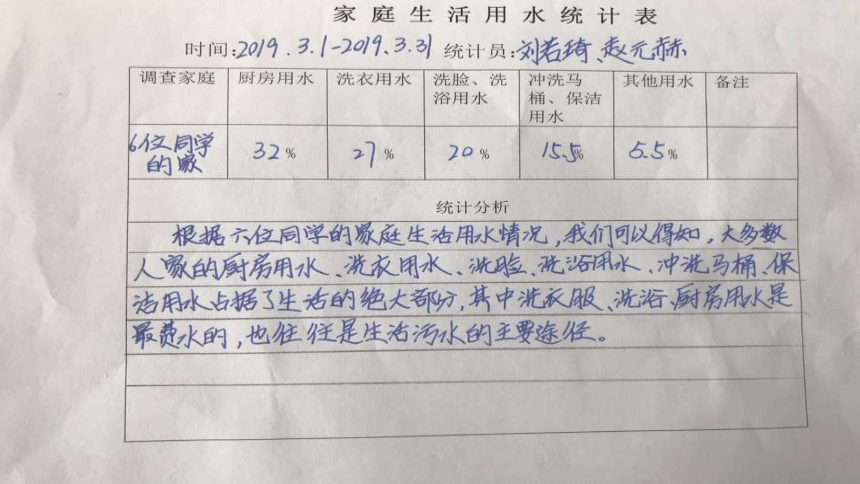 家庭生活用水统计表
时间:2019.3.1-2019.3.31 统计员:刘若琦、赵元赫
调查家庭 厨房用水 洗衣用水 洗脸、洗浴用水 冲洗马桶、保洁用水 其他用水 备注
6位同学的家 32% 27% 20% 15.5% 5.5%
统计分析
根据六位同学的家庭生活用水情况,我们可以得知,大多数
人家的厨房用水、洗衣用水、洗脸、洗浴用水、冲洗马桶、保
洁用水占据了生活的绝大部分,其中洗衣服、洗浴、厨房用水是
最费水的,也往往是生活污水的主要途径。